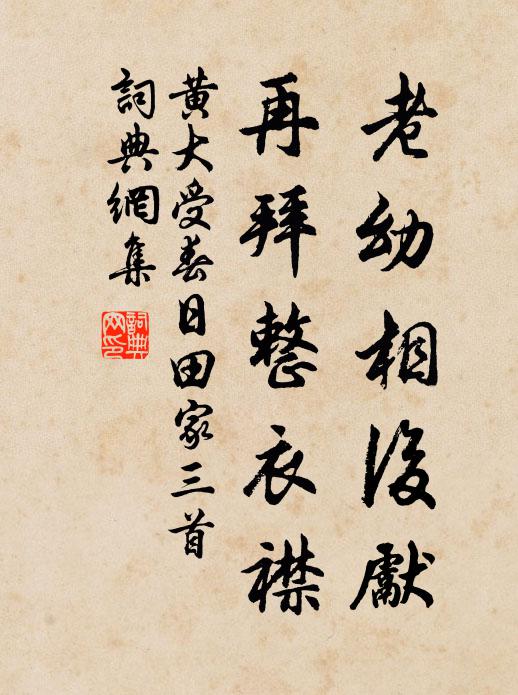 老幼相後獻
再拜整衣襟
黃大受春日田家三首
詞典網集
詞典網印